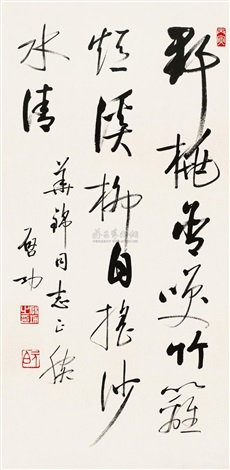 野桃含咲竹籬
短溪柳自搖沙
水清
華錦同志正腕
啟功